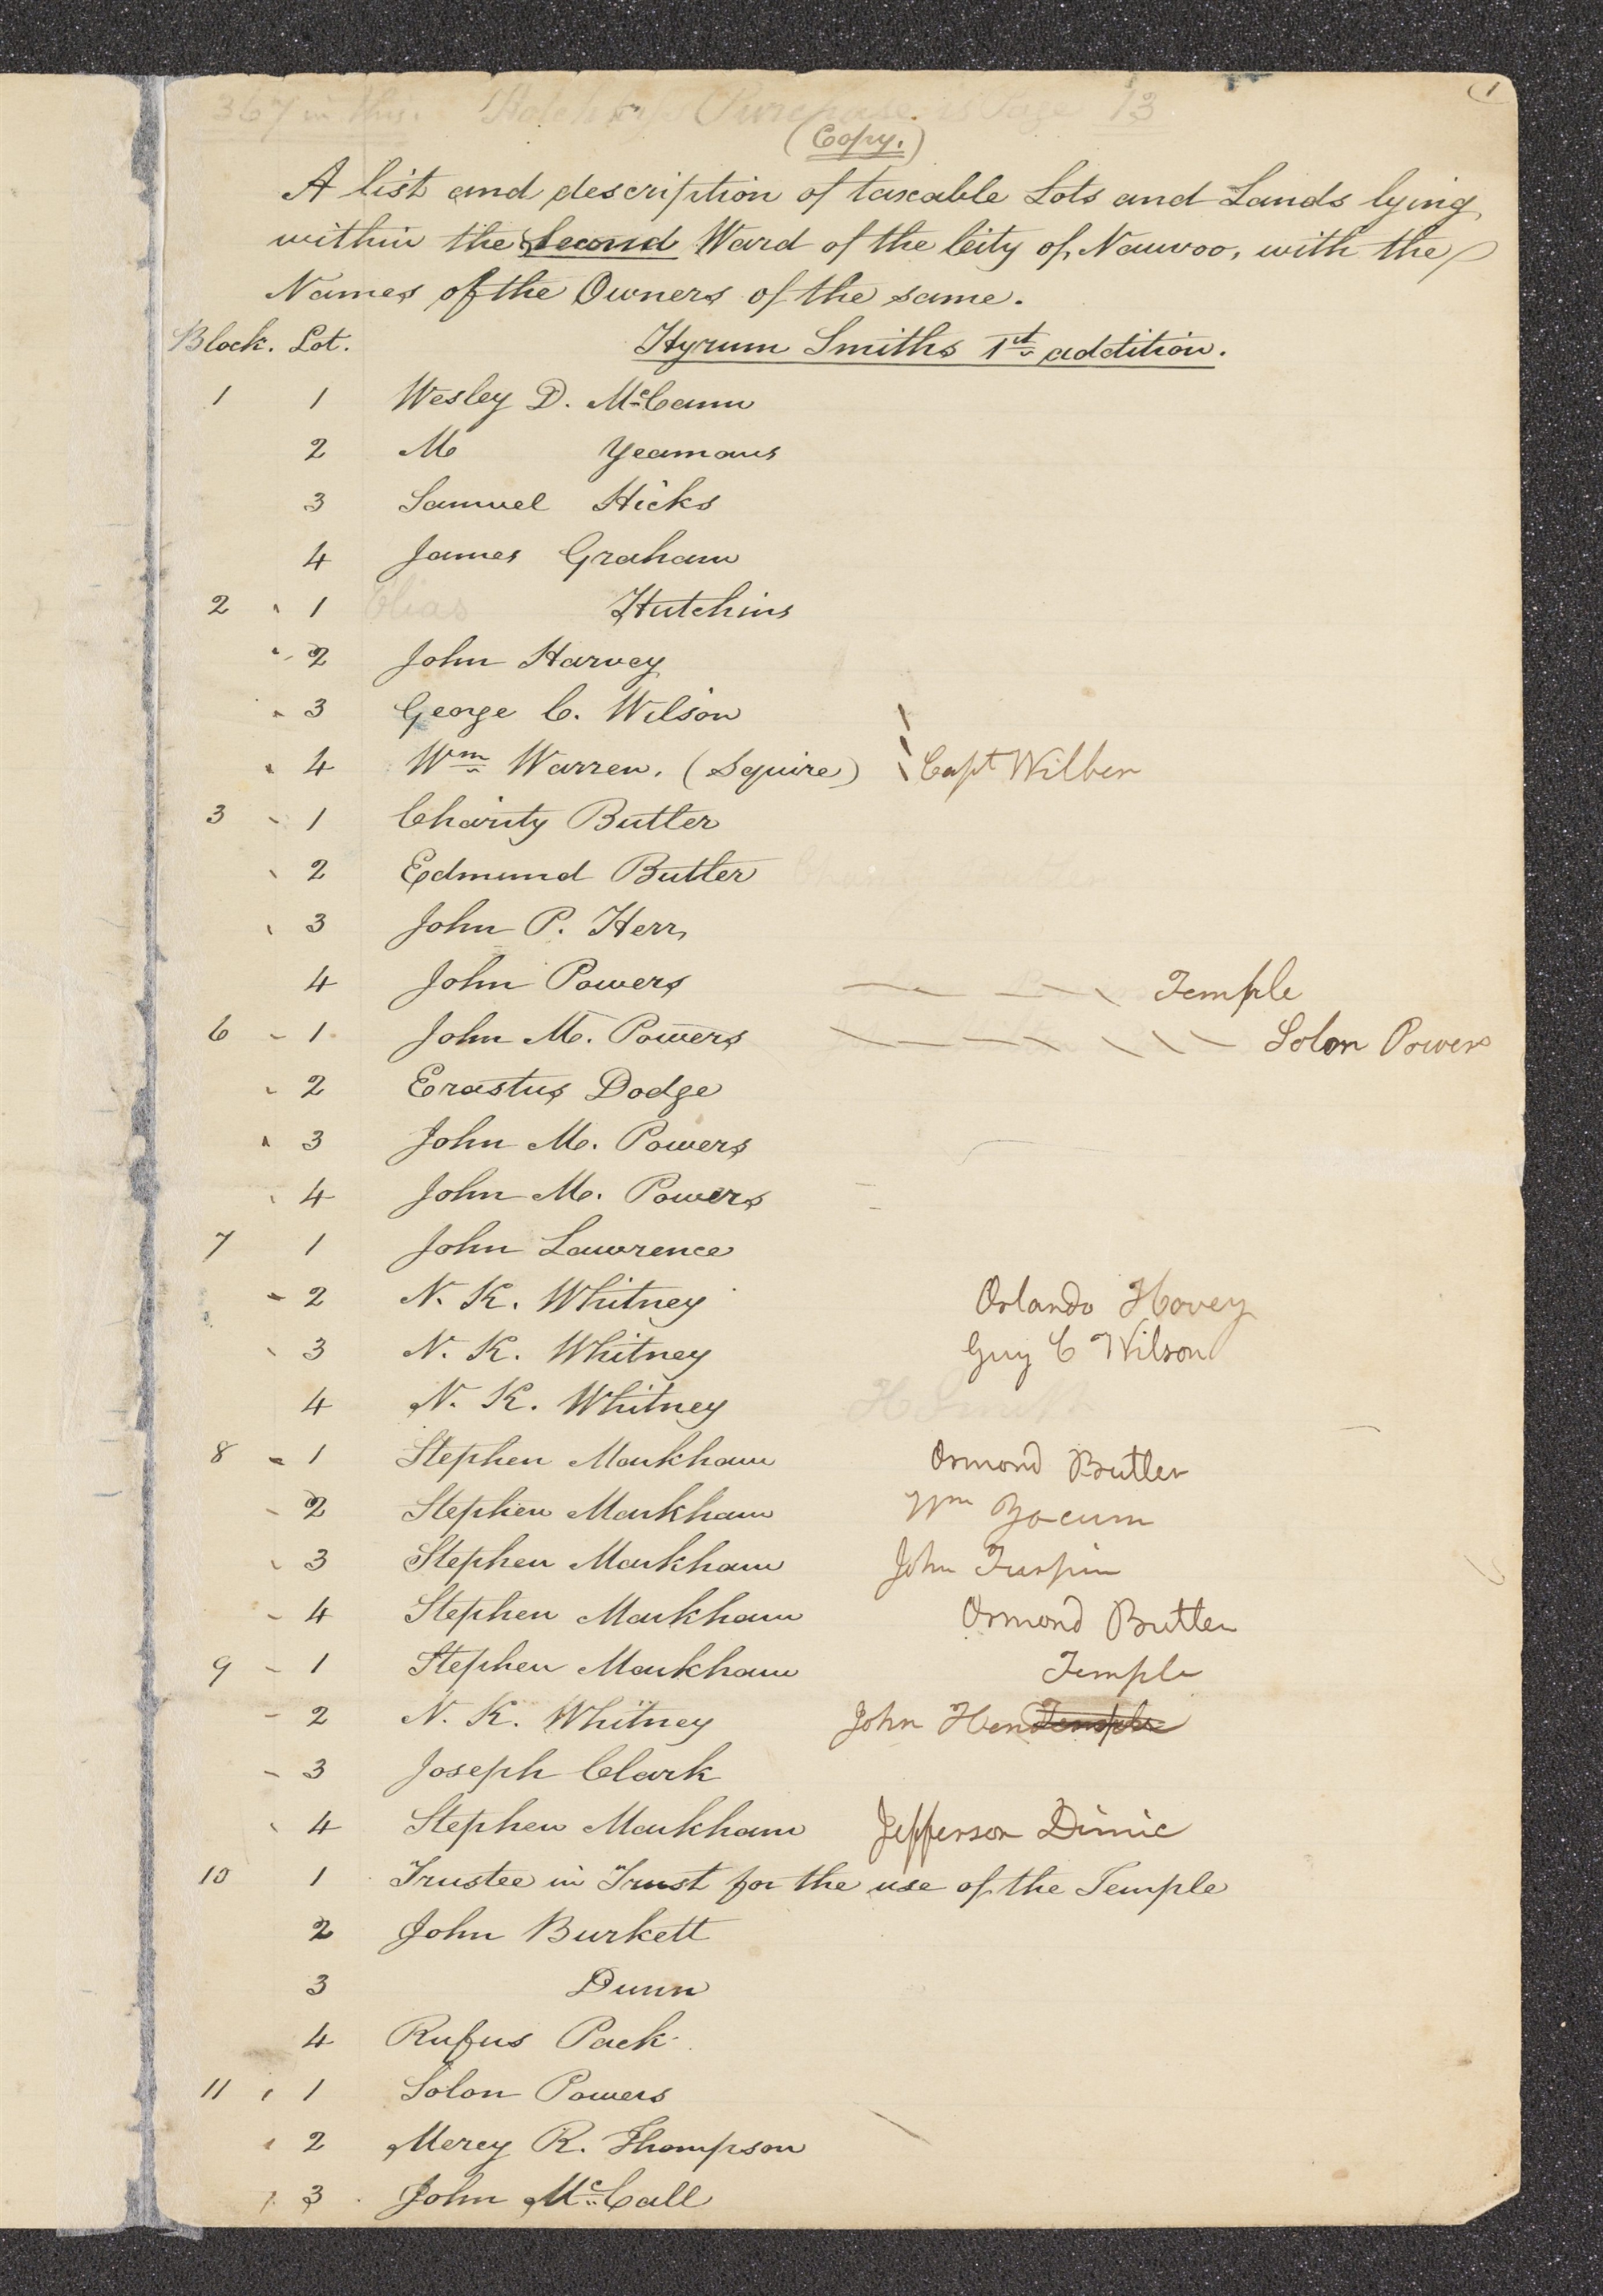 367 in this. Hotchkiss Purchase is Page 13
1
(Copy.)
A list and description of taxable Lots and Lands lying
within the Second Ward of the City of Nauvoo, with the
Names of the Owners of the same.
Block. Lot. Hyrum Smiths 1st addition.
1 1 Wesley D. McCann
2 M Yeamans
3 Samuel Hicks
4 James Graham
2 1 Elias Hutchins
2 John Harvey
3 George C. Wilson
4 Wm Warren. (Squire) Capt Wilber
3 1 Charity Butler
2 Edmund Butler
3 John P. Herr
4 John Powers Temple
6 1 John M. Powers Solon Powers
2 Erastus Dodge
3 John M. Powers
4 John M. Powers
7 1 John Lawrence
2 N. K. Whitney Orlando Hovey
3 N. K. Whitney Guy C Wilson
4 N. K. Whitney H Smith
8 1 Stephen Markham Ormond Butler
2 Stephen Markham Wm Yocum
3 Stephen Markham John Turpin
4 Stephen Markham Ormond Butler
9 1 Stephen Markham Temple
2 N. K. Whitney John Hen Temple
3 Joseph Clark
4 Stephen Markham Jefferson Dimic
10 1 Trustee in Trust for the use of the Temple
2 John Burkett
3 Dunn
4 Rufus Pack
11 1 Solon Powers
2 Mercy R. Thompson
3 John McCall